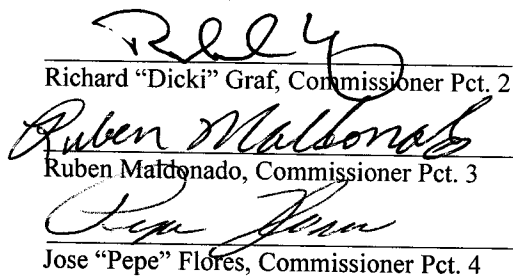 Richard “Dicki” Graf, Commissioner Pct. 2
Ruben Maldonado
Ruben Maldonado, Commissioner Pct. 3
Pepe Flores
Jose “Pepe” Flores, Commissioner Pct. 4